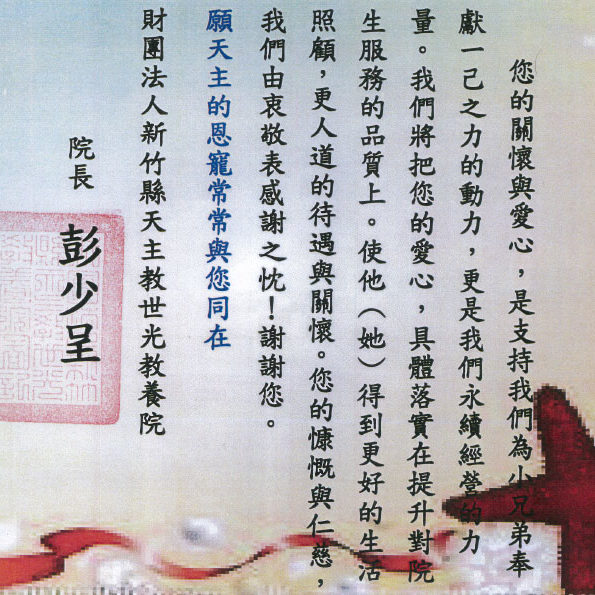 您的關懷與愛心，是支持我們為小兄弟奉
獻一己之力的動力，更是我們永續經營的力
量。我們將把您的愛心，具體落實在提升對院
生服務的品質上。使他（她）得到更好的生活
照顧，更人道的待遇與關懷。您的慷慨與仁慈，
我們由衷敬表感謝之忱！謝謝您。
願天主的恩寵常常與您同在
財團法人新竹縣天主教世光教養院
院長 彭少呈